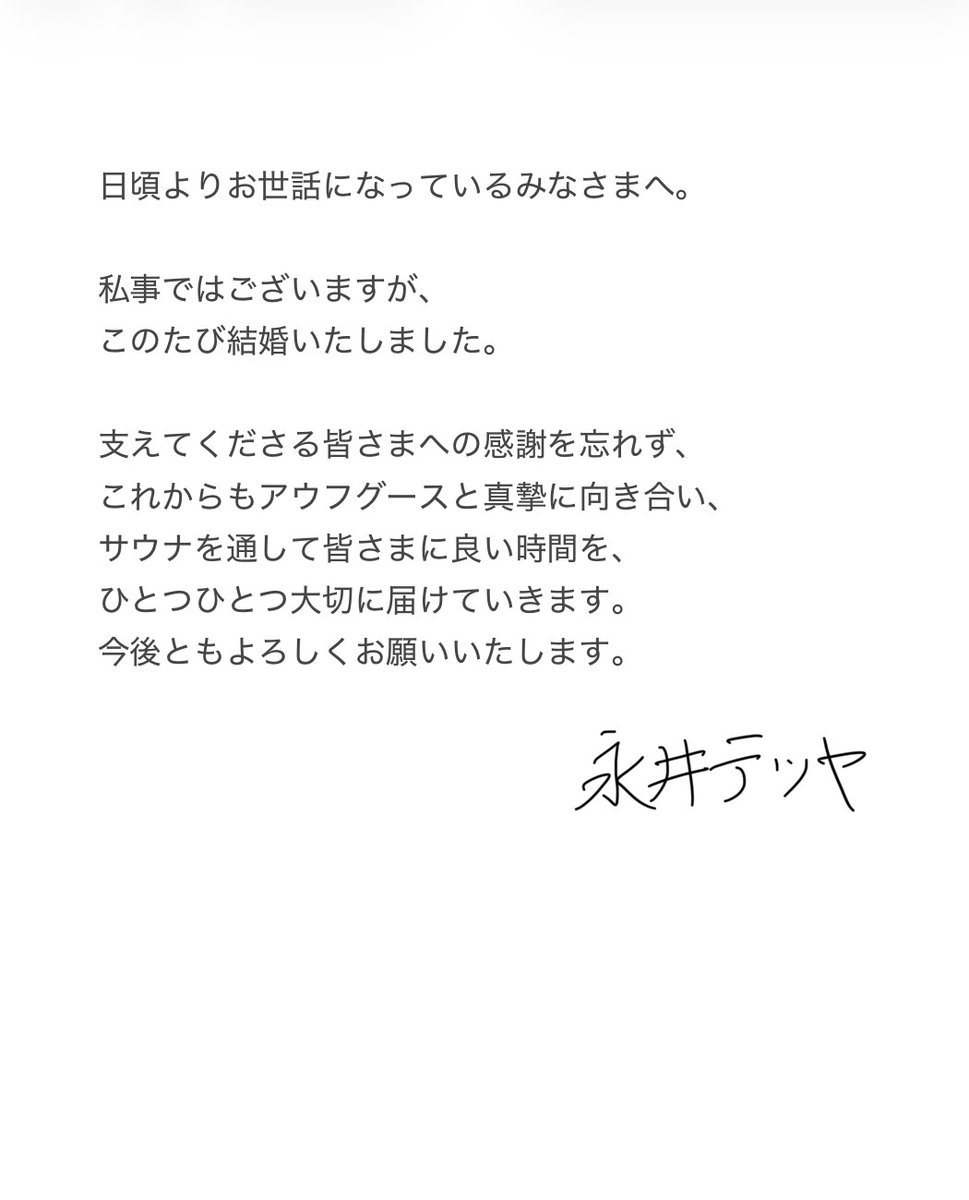 日頃よりお世話になっているみなさまへ。
私事ではございますが、
このたび結婚いたしました。
支えてくださる皆さまへの感謝を忘れず、
これからもアウフグースと真摯に向き合い、
サウナを通して皆さまに良い時間を、
ひとつひとつ大切に届けていきます。
今後ともよろしくお願いいたします。
永井テツヤ